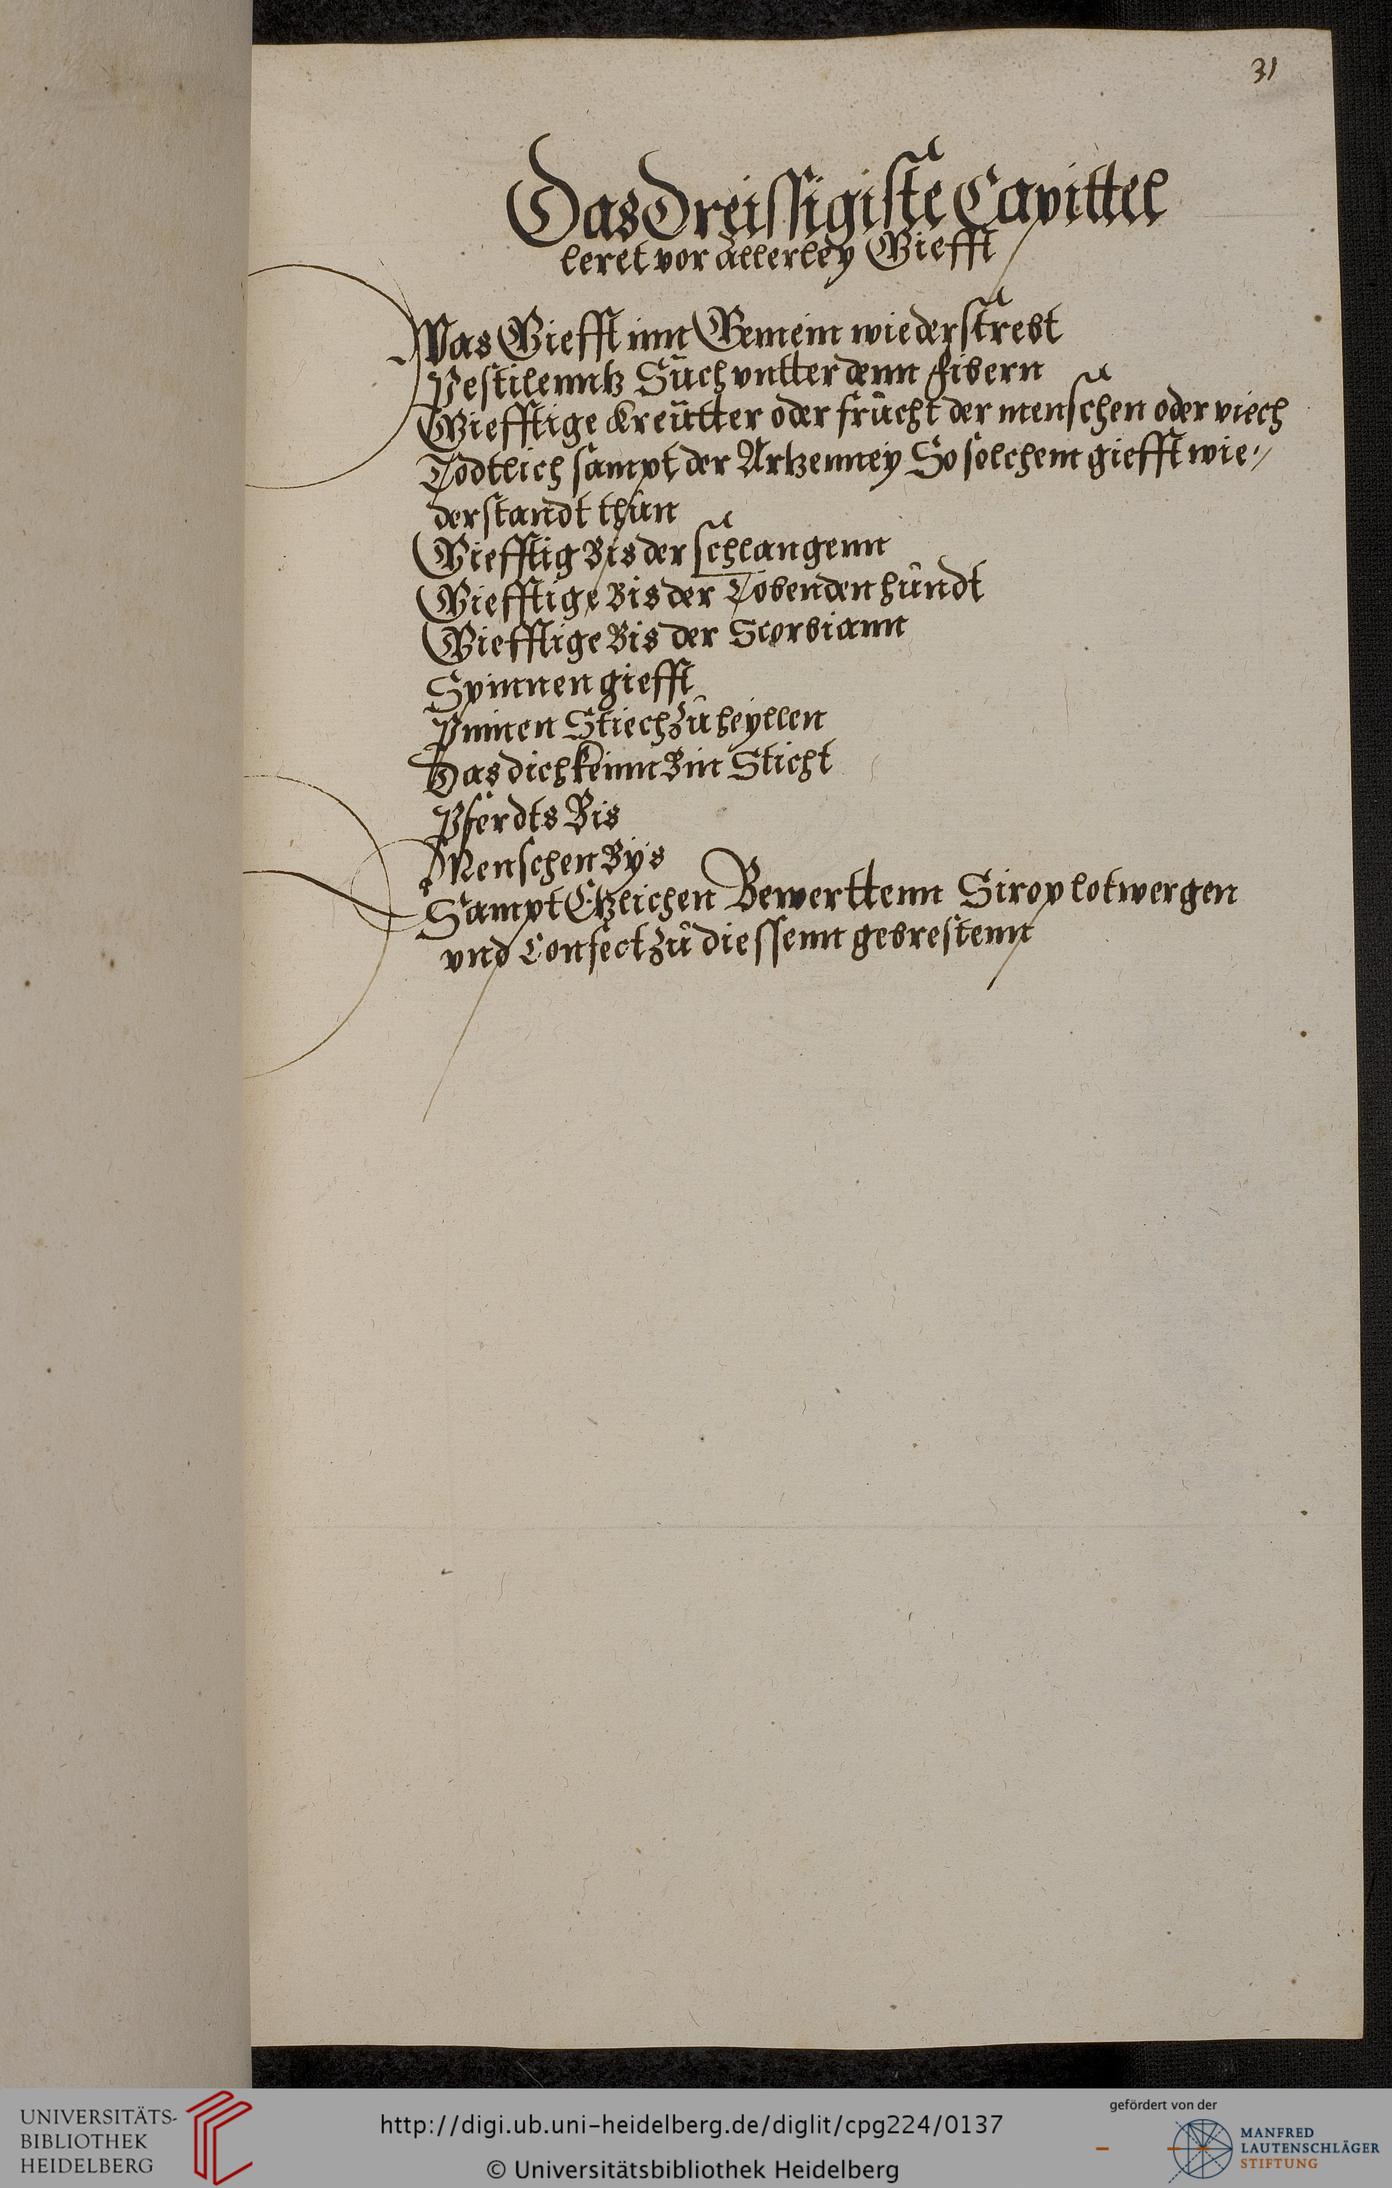 31
Das Dreissigiste Capittel
leret vor allerley Giefft
Was Giefft inn Gemein wiederstrebt
Pestilenntz Such vntter denn Fibern
Giefftige Kreütter oder frücht der menschen oder viech
Todtlich sampt der Artzenney So solchem giefft wie-
derstandt thun
Giefftig Bis der schlangenn
Giefftige Bis der Tobenden hundt
Giefftige Bis der Scorbiann
Spinnen giefft
Pinnen Stiech zu heyllen
Das dich keinn Bin Sticht
Pferdts Bis
Menschen Bys
Sampt Etzlichen Bewerttenn Sirop lotwergen
vnd Confect zu diessenn gebrestenn
UNIVERSITÄTS-
BIBLIOTHEK
HEIDELBERG
http://digi.ub.uni-heidelberg.de/diglit/cpg224/0137
© Universitätsbibliothek Heidelberg
gefördert von der
MANFRED
LAUTENSCHLÄGER
STIFTUNG